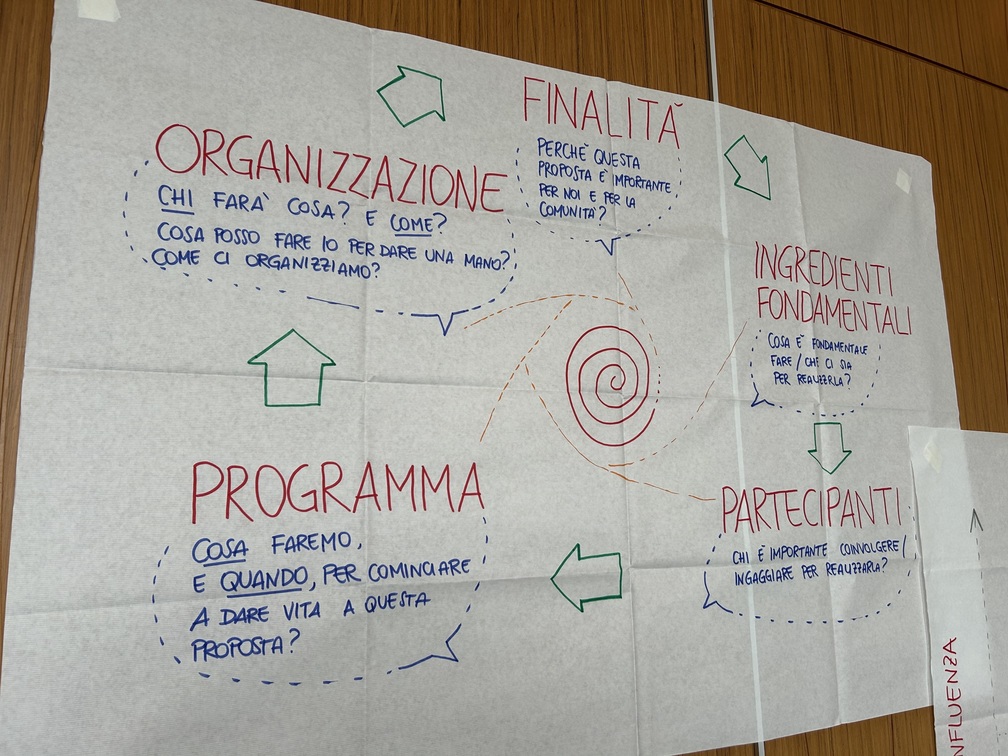 FINALITÀ
PERCHÈ QUESTA
PROPOSTA È IMPORTANTE
PER NOI E PER LA
COMUNITÀ?
INGREDIENTI
FONDAMENTALI
COSA È FONDAMENTALE
FARE / CHE CI SIA
PER REALIZZRLA?
PARTECIPANTI
CHI È IMPORTANTE COINVOLGERE/
INGAGGIARE PER REALIZZARLA?
PROGRAMMA
COSA FAREMO,
E QUANDO, PER COMINCIARE
A DARE VITA A QUESTA
PROPOSTA?
ORGANIZZAZIONE
CHI FARÀ COSA? E COME?
COSA POSSO FARE IO PER DARE UNA MANO?
COME CI ORGANIZZIAMO?
NFLUENZA